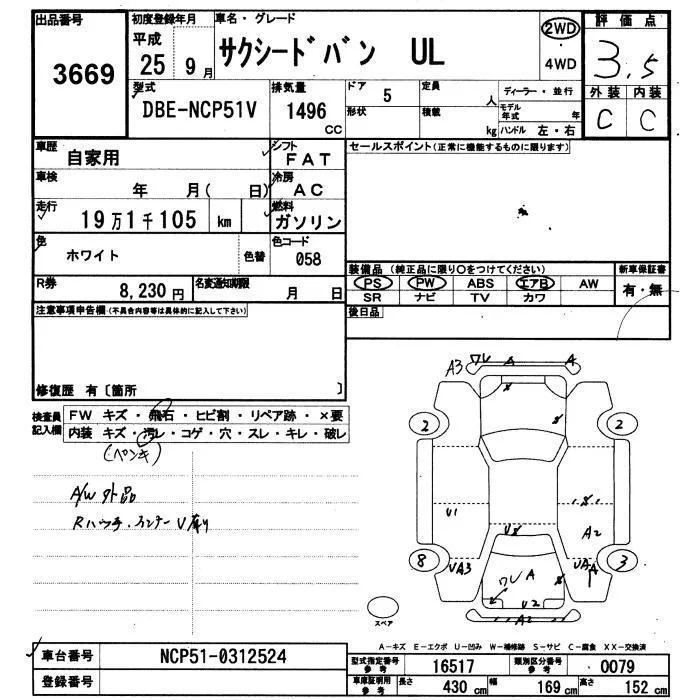 出品番号 初度登録年月 車名・グレード 評価点
3669 平成 25 9月 サクシードバン UL 2WD 4WD 3.5
型式 排気量 ドア 定員 ディーラー・並行 外装 内装
DBE-NCP51V 1496 CC 5 人 モデル年式 年 C C
形状 積載 kg ハンドル 左・右
車歴 自家用 シフト FAT セールスポイント(正常に機能するものに限ります)
車検 年 月( 日) 冷房 AC
走行 19万1千105 km 燃料 ガソリン
色 ホワイト 色替 色コード 058
装備品 (純正品に限り○をつけてください) 新車保証書
R券 8,230円 名変通知期限 月 日 PS PW ABS エアB AW 有・無
SR ナビ TV カワ
注意事項申告欄(不具合内容等は具体的に記入して下さい) 後日品
修復歴 有〔箇所 〕
検査員記入欄 FW キズ・飛石・ヒビ割・リペア跡・×要
内装 キズ・汚レ・コゲ・穴・スレ・キレ・破レ
(ペンキ)
A/W 外品
A3 ワレ A A
2 2
U1 A2
8 UA3 3
ワレ A
U2
A2
スペア
A-キズ E-エクボ U-凹み W-補修跡 S-サビ C-腐食 XX-交換済
車台番号 NCP51-0312524 型式指定番号 参考 16517 類別区分番号 参考 0079
登録番号 車庫証明用 参考 長さ 430 cm 幅 169 cm 高さ 152 cm